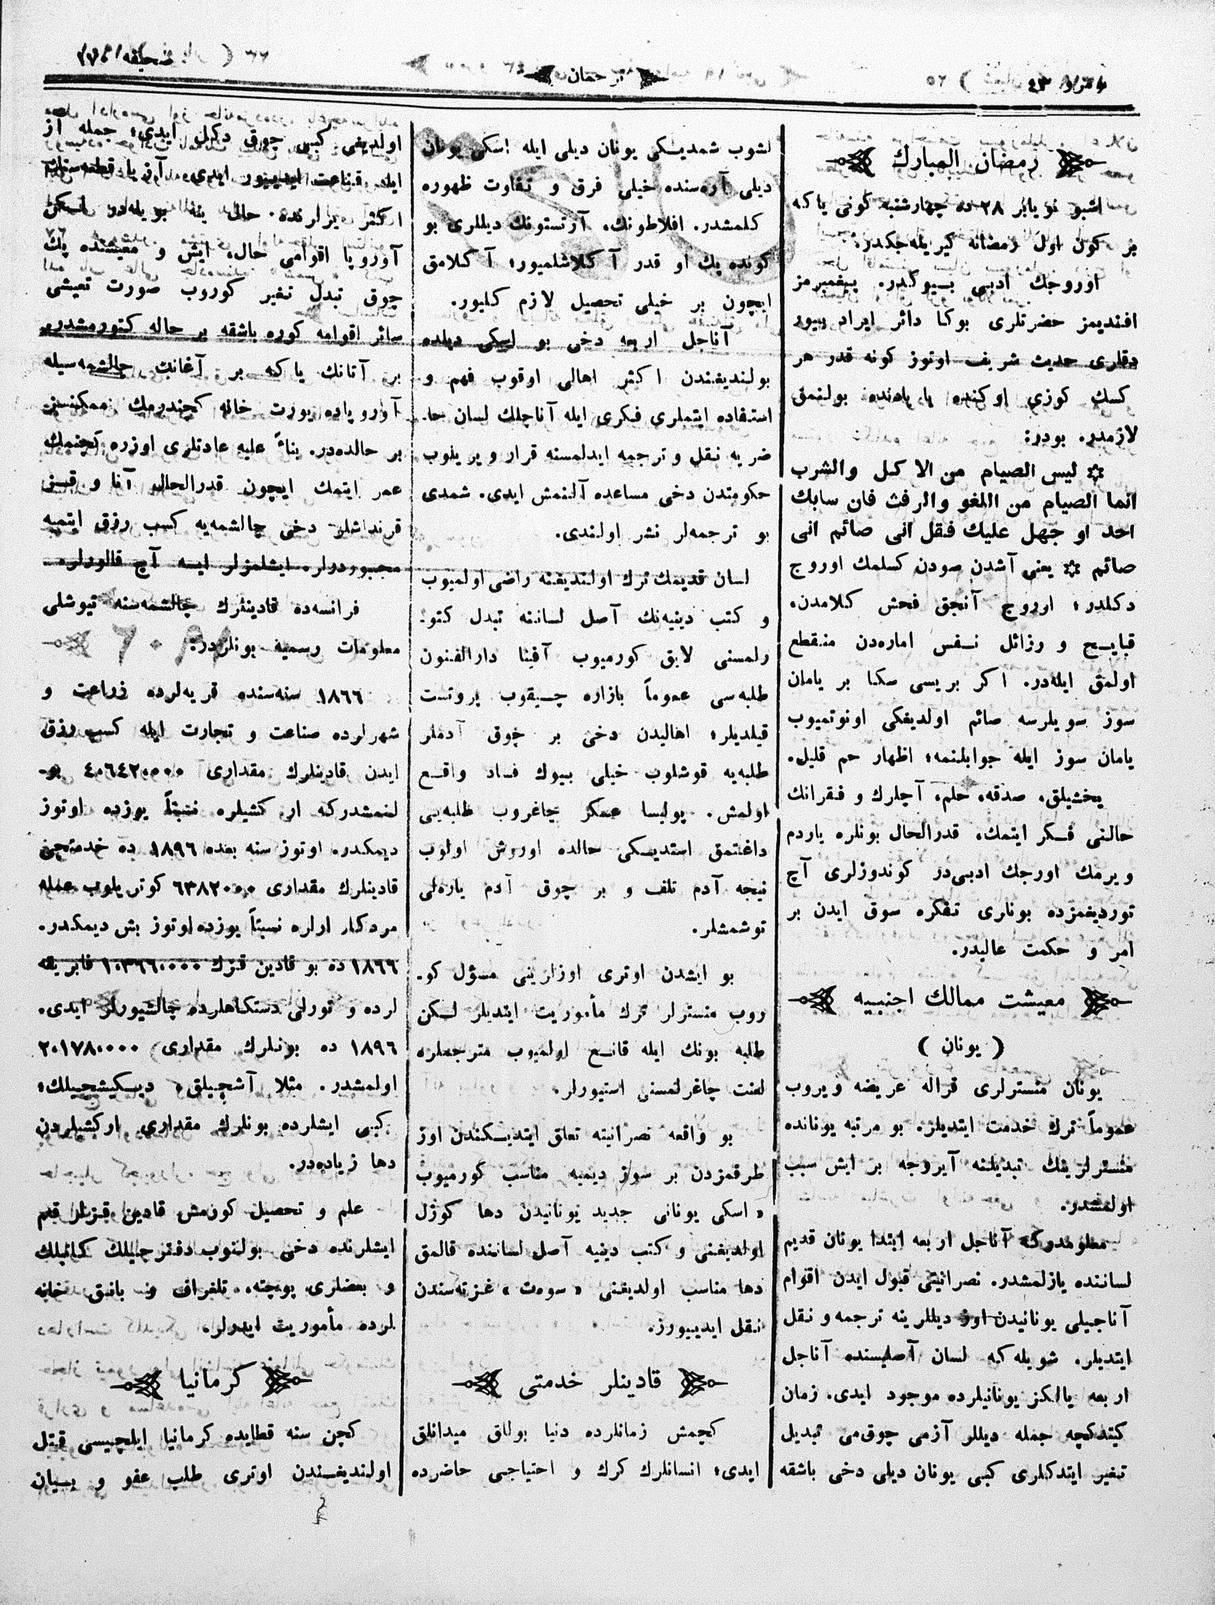 ترجمان
رمضان المبارك
اشبو نويابر ٢٨ ده چهارشنبه كونى ياكه
بر كون اول رمضانه كيريله‌جكدر.
اوروجك ادبى بيوكدر. پيغمبرمز
افنديمز حضرتلرى بوكا دائر ايراد بيور
دقلرى حديث شريف اوتوز كونه قدر هر
كسك كوزى اوكنده يا يادنده بولنمق
لازمدر. بودر:
ليس الصيام من الاكل والشرب
انما الصيام من اللغو والرفث فان سابك
احد او جهل عليك فقل انى صائم انى
صائم يعنى آشدن صودن كسلمك اوروج
دكلدر؛ اوروج آنجق فحش كلامدن،
قبايح و رزائل نفس اماره‌دن منقطع
اولمق ايله‌در. اكر بريسى سكا بر يامان
سوز سويلرسه صائم اولديغكى اونوتميوب
يامان سوز ايله جوابلنمه؛ اظهار حم قليل.
يخشيلق، صدقه، حلم، آچلرك و فقرانك
حالنى فكر ايتمك، قدرالحال بونلره ياردم
ويرمك اورجك ادبى‌در كوندوزلرى آچ
تورديغمزده بونلرى تفكره سوق ايدن بر
امر و حكمت عاليدر.
معيشت ممالك اجنبيه
( يونان )
يونان منسترلرى قراله عريضه ويروب
عموماً ترك خدمت ايتديلر. بو مرتبه يونانده
منسترلرينك تبديلنه آيروجه بر ايش سبب
اولمشدر.
معلومدركه آناجل اربعه ابتدا يونان قديم
لساننده يازلمشدر. نصرانيتى قبول ايدن اقوام
آناجيلى يونانيدن اوز ديللرينه ترجمه و نقل
ايتديلر. شويله‌كه لسان آصليسنده آناجل
اربعه يالكز يونانيلرده موجود ايدى. زمان
كيتدكچه جمله ديللر آزمى چوق‌مى تبديل
تغير ايتدكلرى كبى يونان ديلى دخى باشقه
لشوب شمديكى يونان ديلى ايله اسكى يونان
ديلى آره‌سنده خيلى فرق و تفاوت ظهوره
كلمشدر. افلاطونك، آرستونك ديللرى بو
كونده پك او قدر آكلاشلميور؛ آكلامق
ايچون بر خيلى تحصيل لازم كليور.
آناجل اربعه دخى بو اسكى ديلده
بولنديغندن اكثر اهالى اوقوب فهم و
استفاده ايتملرى فكرى ايله آناجلك لسان حا
ضريه نقل و ترجمه ايدلمسنه قرار ويريلوب
حكومتدن دخى مساعده آلنمش ايدى. شمدى
بو ترجمه‌لر نشر اولندى.
لسان قديمك ترك اولنديغنه راضى اولميوب
و كتب دينيه‌نك آصل لساننه تبدل كتو
رلمسنى لايق كورميوب آفينا دارالفنون
طلبه‌سى عموماً بازاره چيقوب پروتست
قيلديلر؛ اهاليدن دخى بر چوق آدملر
طلبه‌يه قوشلوب خيلى بيوك فساد واقع
اولمش. پوليسا عسكر چاغروب طلبه‌يى
داغتمق استديكى حالده اوروش اولوب
نيجه آدم تلف و بر چوق آدم ياره‌لى
توشمشلر.
بو ايشدن اوترى اوزلرينى مسؤل كو
روب منسترلر ترك مأموريت ايتديلر لكن
طلبه بونك ايله قانع اولميوب مترجملره
لعنت چاغرلمسنى استيورلر.
بو واقعه نصرانيته تعلق ايتديكندن اوز
طرفمزدن بر سوز ديميه مناسب كورميوب
«اسكى يونانى جديد يونانيدن دها كوزل
اولديغنى و كتب دينيه آصل لساننده قالمق
دها مناسب اولديغنى «سوەت» غزته‌سندن
نقل ايدييورز.
قادينلر خدمتى
كچمش زمانلرده دنيا بوللق ميدانلق
ايدى؛ انسانلرك كرك و احتياجى حاضرده
اولديغى كبى چوق دكل ايدى؛ جمله از
ايله قناعت ايدييور ايدى. آزيا قطعه‌سنك
اكثر يرلرنده حال ينه بويله‌در لكن
آوروپا اقوامى حال، ايش و معيشنده پك
چوق تبدل تغير كوروب صورت تعيشى
سائر اقوامه كوره باشقه بر حاله كتورمشدر.
بر آتانك ياكه بر آغانك چالشمه‌سيله
آوروپاده يورت خانه كچندرمك ممكنسز
بر حالده‌در. بناءً عليه عادتلرى اوزره كچنمك
عمر ايتمك ايچون قدرالحال آنا و قيز
قرنداشلر دخى چالشمه‌يه كسب رزق ايتميه
مجبوردرلر. ايشلمزلر ايسه آچ قالورلر.
فرانسه‌ده قادينلرك چالشمه‌سنه تيوشلى
معلومات رسميه بونلردر:
١٨٦٦ سنه‌سنده قريه‌لرده زراعت و
شهرلرده صناعت و تجارت ايله كسب رزق
ايدن قادينلرك مقدارى ٤٠٦٤٢٠٠٠ بو
لنمشدركه ار كشيلره نسبتاً يوزده اوتوز
ديمكدر. اوتوز سنه بعده ١٨٩٦ ده خدمتچى
قادينلرك مقدارى ٦٣٨٢٠٠٠ كوتريلوب عمله
مردكار ارلره نسبتاً يوزده اوتوز بش ديمكدر.
١٨٦٦ ده بو قادين قيزك ١٠٣٦٦٠٠٠٠ فابريقه
لرده و تورلى دستكاهلرده چالشيورلر ايدى.
١٨٩٦ ده بونلرك مقدارى ٢٠١٧٨٠٠٠٠
اولمشدر. مثلا آشچيلق، ديكيشچيلك؛
كبى ايشلرده بونلرك مقدارى اركشيلردن
دها زياده‌در.
علم و تحصيل كورمش قادين قيزلر قلم
ايشلرنده دخى بولنوب دفترچيلك كاتبلك
و بعضلرى پوچته، تلغراف و بانق خانه
لرده مأموريت ايدرلر.
كرمانيا
كچن سنه قطايده كرمانيا ايلچيسى قتل
اولنديغندن اوترى طلب عفو و بيان